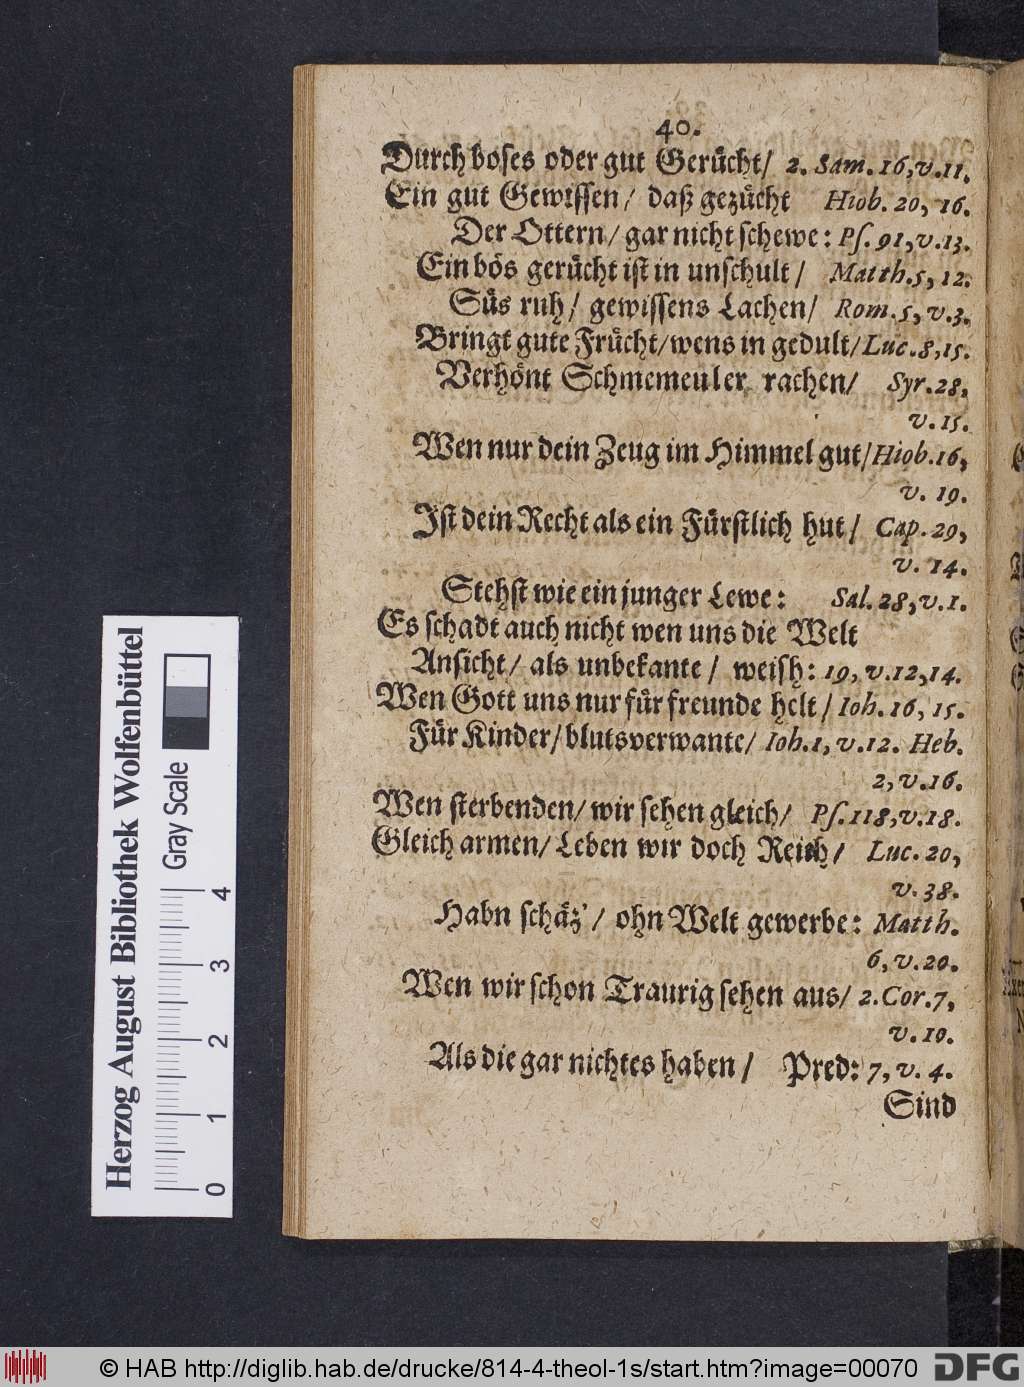 40.
Durch boses oder gut Gerücht/ 2. Sam. 16, v. 11.
Ein gut Gewissen/ daß gezücht Hiob. 20, 16.
Der Ottern/ gar nicht schewe: Ps. 91, v. 13.
Ein bös gerücht ist in unschult/ Matth. 5, 12.
Süs ruh/ gewissens Lachen/ Rom. 5, v. 3.
Bringt gute Frücht/ wens in gedult/ Luc. 8, 15.
Verhönt Schmemeuler rachen/ Syr. 28,
v. 15.
Wen nur dein Zeug im Himmel gut/ Hiob. 16,
v. 19.
Ist dein Recht als ein Fürstlich hut/ Cap. 29,
v. 14.
Stehst wie ein junger Lewe: Sal. 28, v. 1.
Es schadt auch nicht wen uns die Welt
Ansicht/ als unbekante/ weish: 19, v. 12, 14.
Wen Gott uns nur für freunde helt/ Ioh. 16, 15.
Für Kinder/ blutsverwante/ Ioh. 1, v. 12. Heb.
2, v. 16.
Wen sterbenden/ wir sehen gleich/ Ps. 118, v. 18.
Gleich armen/ Leben wir doch Reich/ Luc. 20,
v. 38.
Habn schäz'/ ohn Welt gewerbe: Matth.
6, v. 20.
Wen wir schon Traurig sehen aus/ 2. Cor. 7,
v. 10.
Als die gar nichtes haben/ Pred: 7, v. 4.
Sind
Herzog August Bibliothek Wolfenbüttel
Gray Scale
0 1 2 3 4
© HAB http://diglib.hab.de/drucke/814-4-theol-1s/start.htm?image=00070
DFG